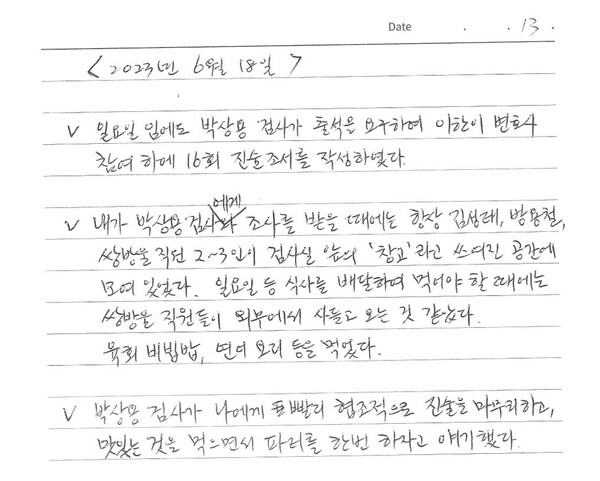 Date . . 13 .
< 2023년 6월 18일 >
∨ 일요일 임에도 박상용 검사가 출석을 요구하여 이한이 변호사
참여 하에 16회 진술조서를 작성하였다.
에게
∨ 내가 박상용 검사와 조사를 받을 때에는 항상 김성태, 방용철,
쌍방울 직원 2~3인이 검사실 앞의 '창고'라고 쓰여진 공간에
모여 있었다. 일요일 등 식사를 배달하여 먹어야 할 때에는
쌍방울 직원들이 외부에서 사들고 오는 것 같았다.
육회 비빔밥, 연어 요리 등을 먹었다.
∨ 박상용 검사가 나에게 빨리 협조적으로 진술을 마무리하고,
맛있는 것을 먹으면서 파티를 한번 하자고 얘기했다.